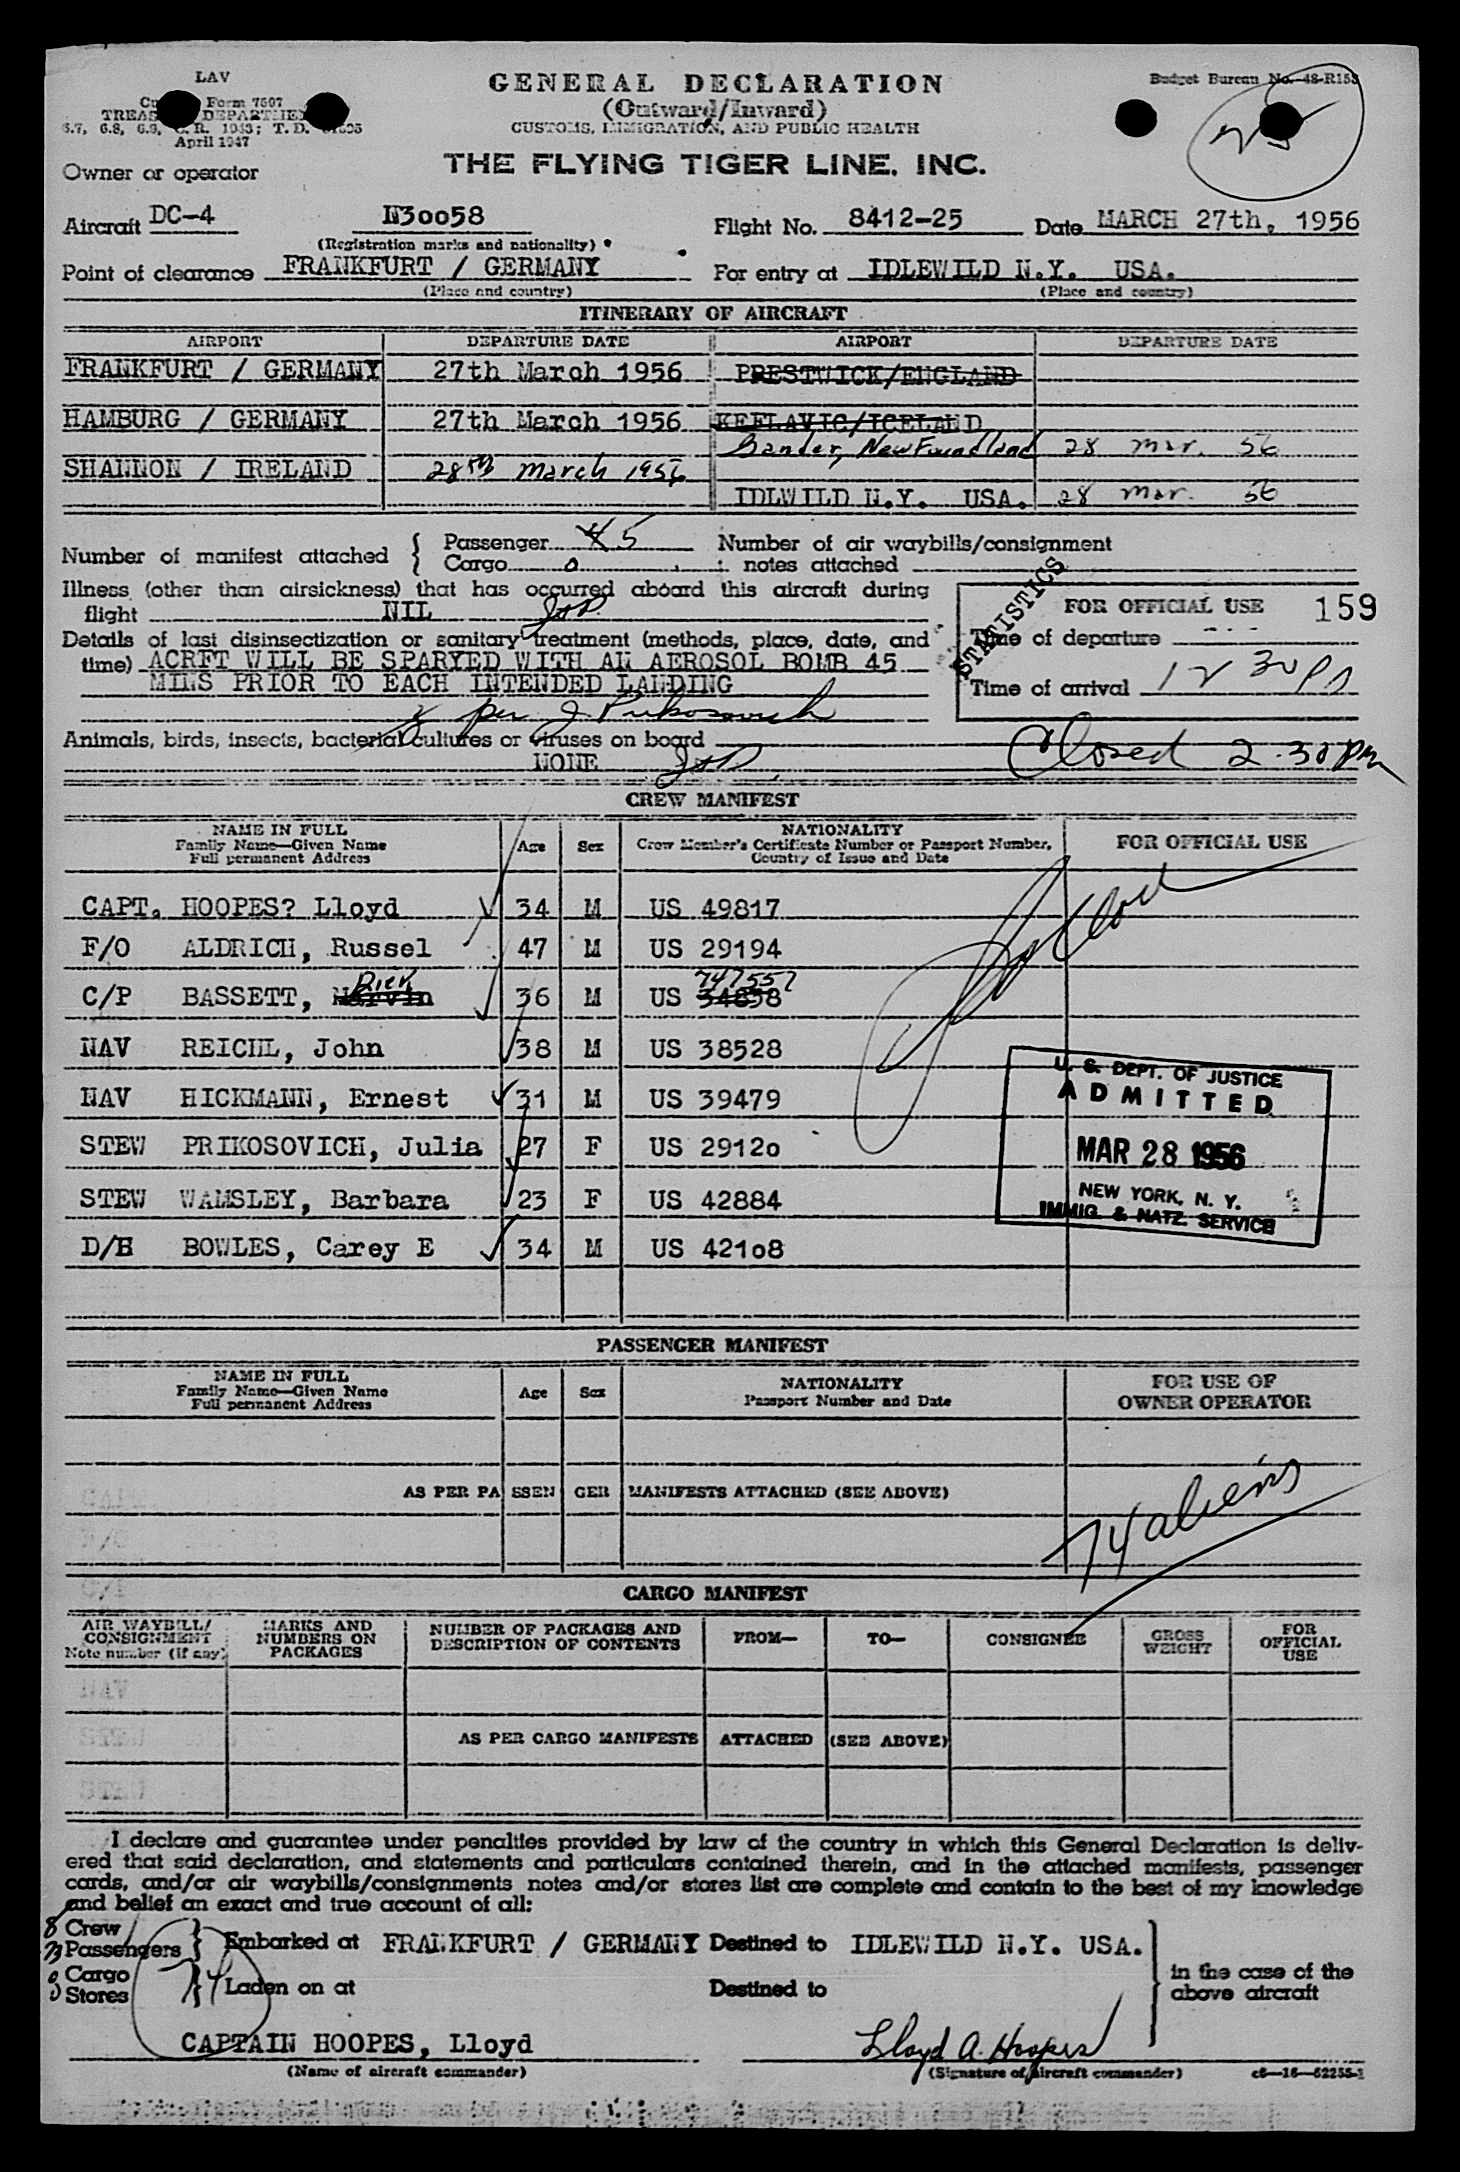 LAV
GENERAL DECLARATION
Budget Bureau No. 48-R153
Form 7507
(Outward/Inward)
TREASURY DEPARTMENT
CUSTOMS, IMMIGRATION, AND PUBLIC HEALTH
6.7, 6.8, 6.9, C. R. 1943; T. D.
April 1947
THE FLYING TIGER LINE. INC.
Owner or operator
Aircraft DC-4 N30058 Flight No. 8412-25 Date MARCH 27th, 1956
(Registration marks and nationality)
Point of clearance FRANKFURT / GERMANY For entry at IDLEWILD N.Y. USA.
(Place and country) (Place and country)
ITINERARY OF AIRCRAFT
AIRPORT DEPARTURE DATE AIRPORT DEPARTURE DATE
FRANKFURT / GERMANY 27th March 1956 PRESTWICK/ENGLAND
HAMBURG / GERMANY 27th March 1956 KEFLAVIC/ICELAND
Gander, NewFoundland 28 mar. 56
SHANNON / IRELAND 28th March 1956
IDLWILD N.Y. USA. 28 mar. 56
Number of manifest attached { Passenger 5 Number of air waybills/consignment
Cargo 0 notes attached
Illness (other than airsickness) that has occurred aboard this aircraft during
flight NIL
STATISTICS
FOR OFFICIAL USE 159
Details of last disinsectization or sanitary treatment (methods, place, date, and
Time of departure
time) ACRFT WILL BE SPARYED WITH AN AEROSOL BOMB 45
MINS PRIOR TO EACH INTENDED LANDING
Time of arrival 12 30 pm
per J Prikosovich
Animals, birds, insects, bacterial cultures or viruses on board
Closed 2.30 pm
NONE
CREW MANIFEST
NAME IN FULL
Family Name—Given Name
Full permanent Address
Age Sex
NATIONALITY
Crew Member's Certificate Number or Passport Number,
Country of Issue and Date
FOR OFFICIAL USE
CAPT. HOOPES? Lloyd 34 M US 49817
F/O ALDRICH, Russel 47 M US 29194
Dick 747557
C/P BASSETT, Marvin 36 M US 34838
NAV REICHL, John 38 M US 38528
NAV HICKMANN, Ernest 31 M US 39479
STEW PRIKOSOVICH, Julia 27 F US 2912o
STEW WAMSLEY, Barbara 23 F US 42884
D/H BOWLES, Carey E 34 M US 421o8
U. S. DEPT. OF JUSTICE
ADMITTED
MAR 28 1956
NEW YORK, N. Y.
IMMIG. & NATZ. SERVICE
PASSENGER MANIFEST
NAME IN FULL
Family Name—Given Name
Full permanent Address
Age Sex
NATIONALITY
Passport Number and Date
FOR USE OF
OWNER OPERATOR
AS PER PASSENGER MANIFESTS ATTACHED (SEE ABOVE)
74 aliens
CARGO MANIFEST
AIR WAYBILL/
CONSIGNMENT
Note number (if any)
MARKS AND
NUMBERS ON
PACKAGES
NUMBER OF PACKAGES AND
DESCRIPTION OF CONTENTS
FROM—
TO—
CONSIGNEE
GROSS
WEIGHT
FOR
OFFICIAL
USE
AS PER CARGO MANIFESTS ATTACHED (SEE ABOVE)
I declare and guarantee under penalties provided by law of the country in which this General Declaration is deliv-
ered that said declaration, and statements and particulars contained therein, and in the attached manifests, passenger
cards, and/or air waybills/consignments notes and/or stores list are complete and contain to the best of my knowledge
and belief an exact and true account of all:
8 Crew
Passengers } Embarked at FRANKFURT / GERMANY Destined to IDLEWILD N.Y. USA.
0 Cargo
0 Stores } Laden on at Destined to
74
in the case of the
above aircraft
CAPTAIN HOOPES, Lloyd Lloyd A. Hoopes
(Name of aircraft commander) (Signature of aircraft commander) c6—16—52255-1